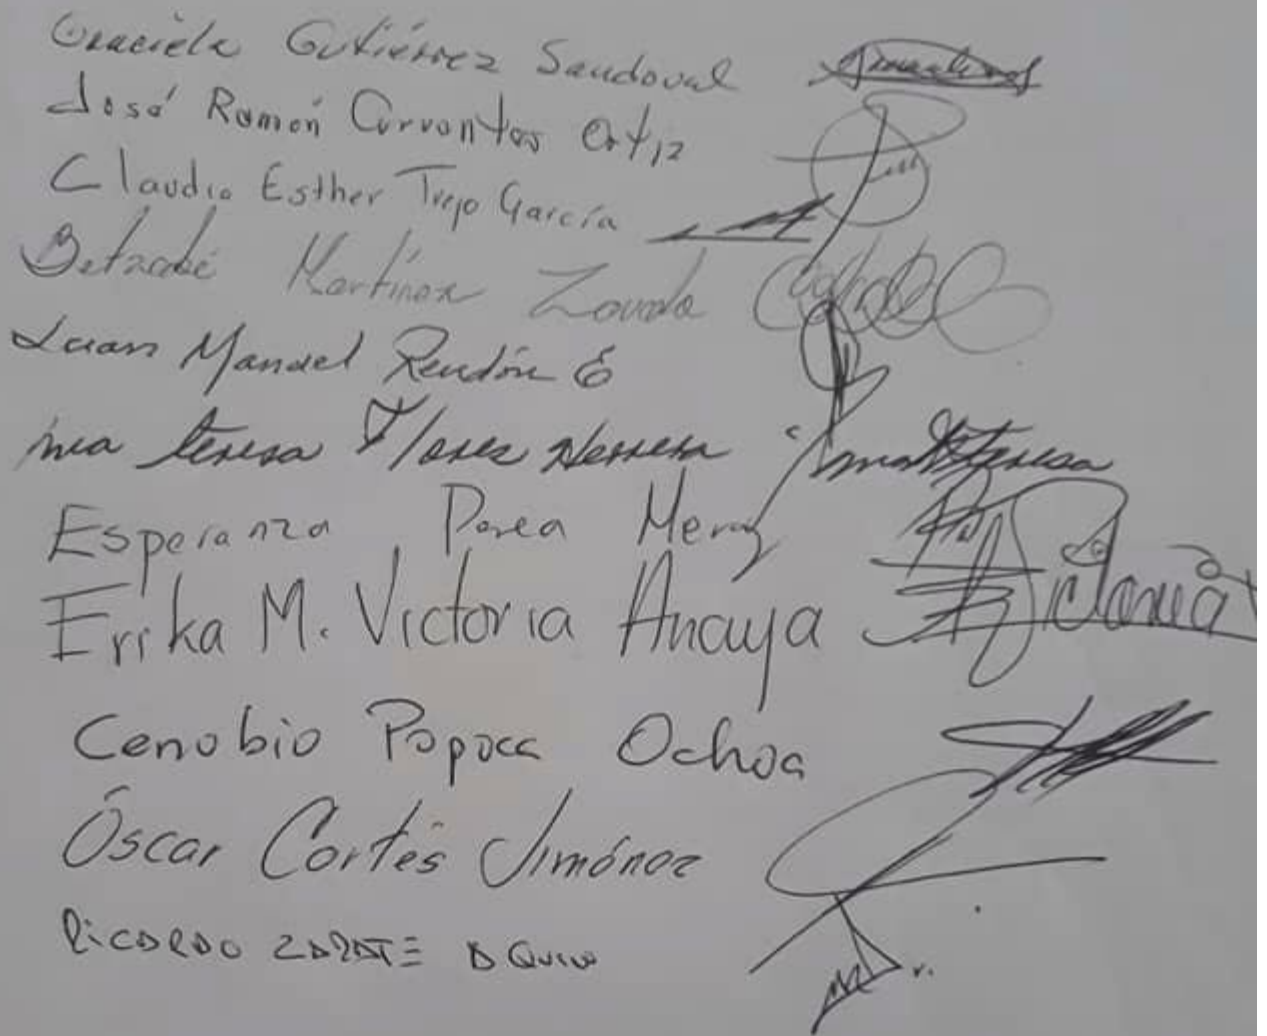 Graciela Gutiérrez Sandoval
José Ramón Cervantes Ortiz
Claudia Esther Trejo García
Betzabé Martínez Zavala
Juan Manuel Rendón E
ma teresa Flores Herrera ma teresa
Esperanza Perea Meraz
Erika M. Victoria Anaya
Cenobio Popoca Ochoa
Óscar Cortés Jiménez
RICARDO ZARATE